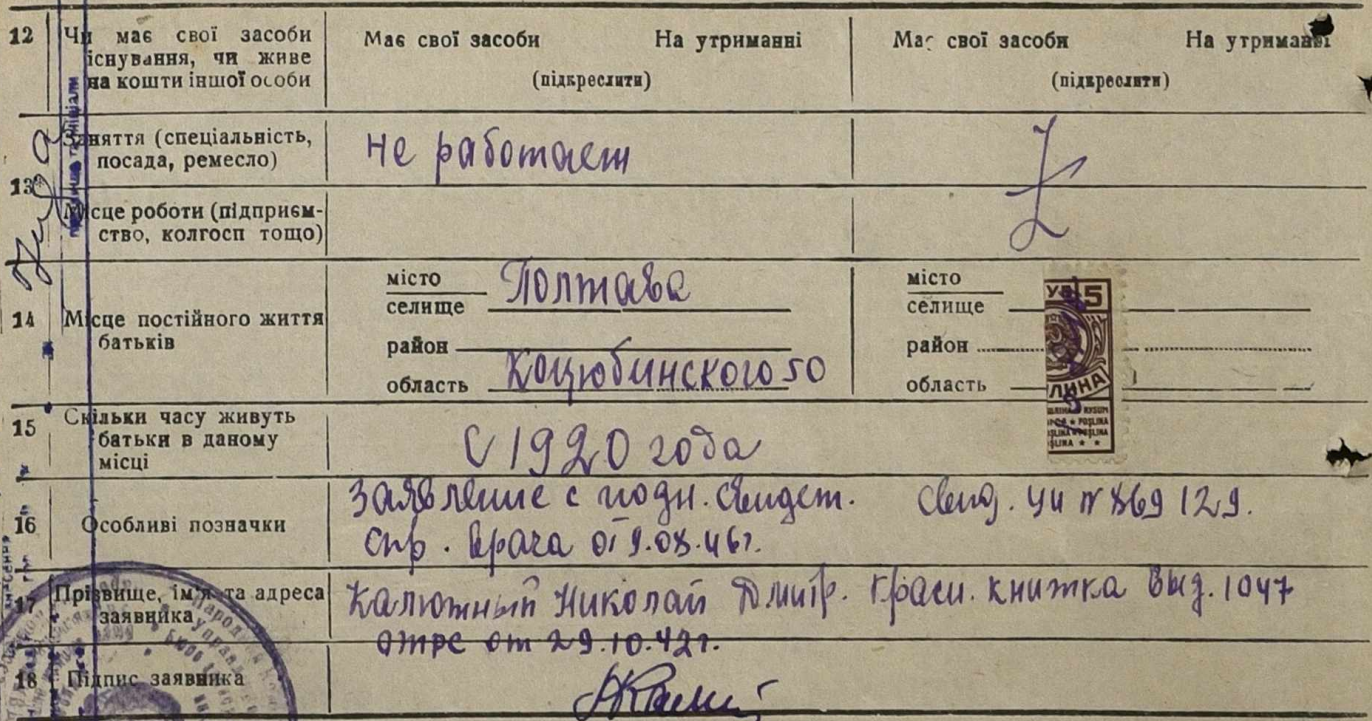 12 Чи має свої засоби існування, чи живе на кошти іншої особи
Має свої засоби На утриманні
(підкреслити)
Має свої засоби На утриманні
(підкреслити)
13 Заняття (спеціальність, посада, ремесло)
не работает
Z
Місце роботи (підприємство, колгосп тощо)
14 Місце постійного життя батьків
місто Полтава
селище
район
область Коцюбинского 50
місто
селище
район
область
15 Скільки часу живуть батьки в даному місці
С 1920 года
16 Особливі позначки
Заявление с подп. свидет. Свид. УИ № 869129.
спр. врача от 9.08.46г.
17 Прізвище, ім'я та адреса заявника
Калюжный Николай Дмитр. красн. книжка выд. 1047
от 29.10.42г.
18 Підпис заявника